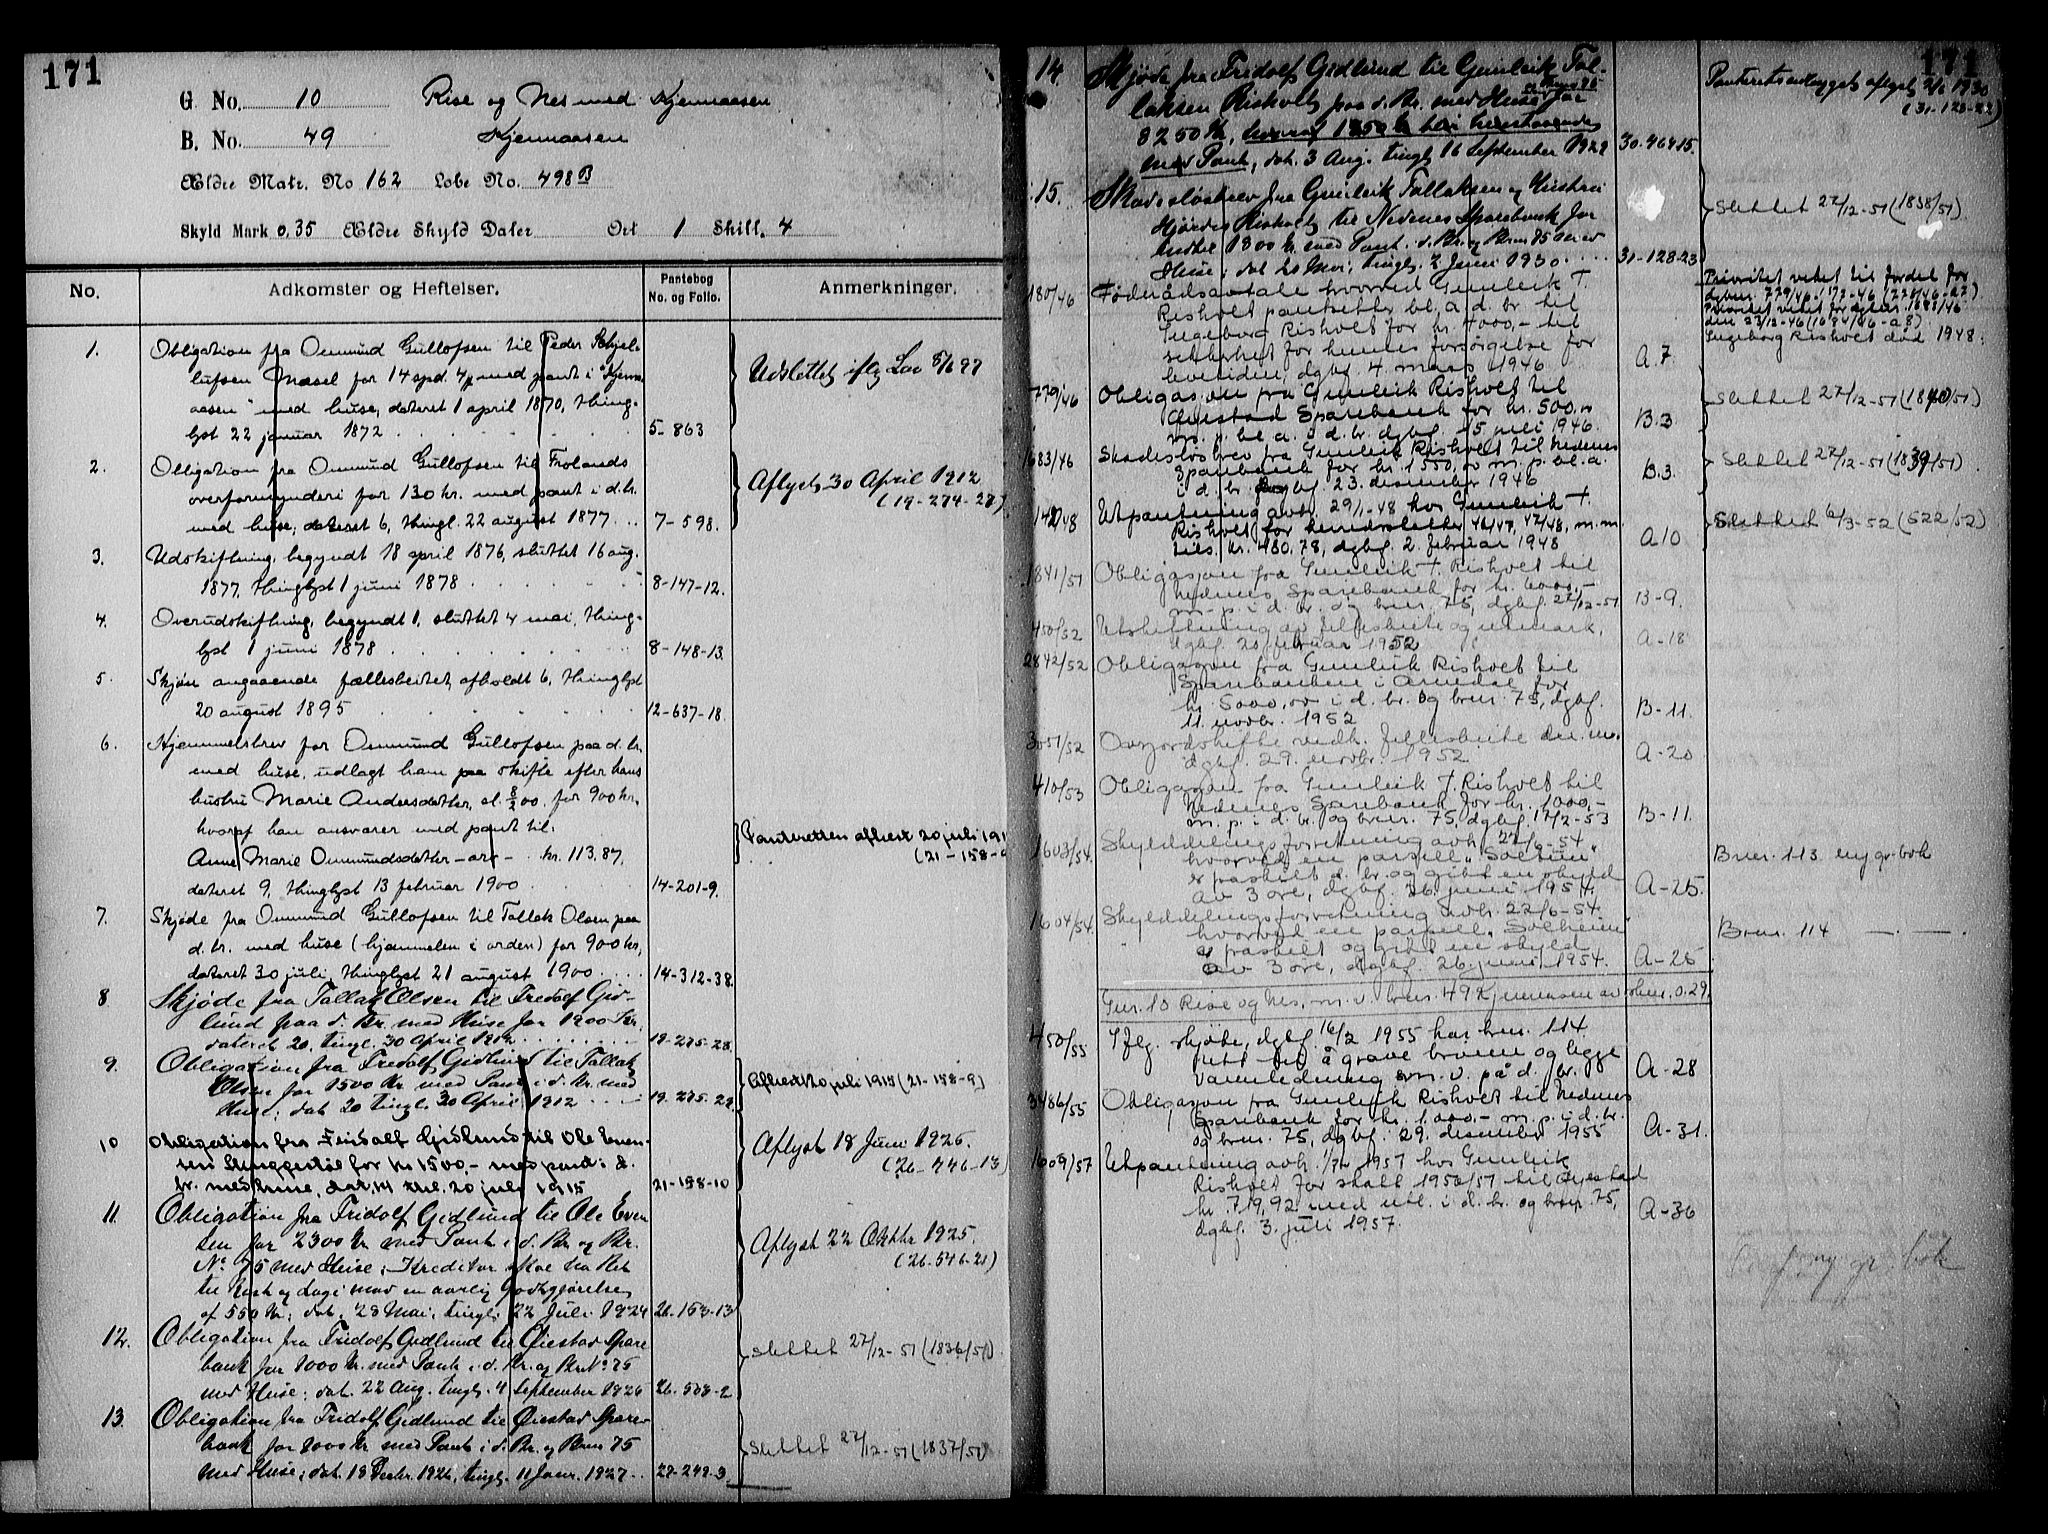 171
G. No. 10 Rise og Nes med Kjenmaasen
B. No. 49 Kjenmaasen
Ældre Matr. No 162 Løbe No. 498 B
Skyld Mark 0.35 Ældre Skyld Daler Ort 1 Skill. 4
No. Adkomster og Heftelser. Pantebog No. og Folio. Anmerkninger.
1. Obligation fra Ommund Gullofsen til Peder
lufsen Mæsel for 14 spd. med pant i "Kjenm-
aasen" med huse, dateret 1 april 1870, thing-
lyst 22 januar 1872 5-863
Udslettet iflg Lov
2. Obligation fra Ommund Gullofsen til Frolands
overformynderi for 130 kr. med pant i d. br.
med huse, dateret 6, thingl. 22 august 1877 7-598.
Aflyst 30 April 1912
(19-274-27)
3. Udskiftning, begyndt 18 april 1876, sluttet 16 aug.
1877, thinglyst 1 juni 1878 8-147-12.
4. Overudskiftning, begyndt 1, sluttet 4 mai, thing-
lyst 1 juni 1878 8-148-13.
5. Skjøn angaaende fællesbeitet, afholdt 6, thinglyst
20 august 1895 12-637-18.
6. Hjemmelsbrev for Ommund Gullofsen paa d. br.
med huse, udlagt ham paa skifte efter hans
hustru Marie Andersdatter, sl. 8/2 00. for 900 kr,
hvoraf han ansvarer med pant til:
Anne Marie Ommundsdatter - arv - kr. 113.87,
dateret 9, thinglyst 13 februar 1900 14-201-9.
Panteretten aflæst 20 juli 191
(21-158-
7. Skjøde fra Ommund Gullofsen til Tallak Olsen paa
d. br. med huse (hjemmelen i orden) for 900 kr,
dateret 30 juli, thinglyst 21 august 1900 14-312-38.
8. Skjøde fra Tallak Olsen til Fredolf Gid-
lund paa d. Br. med Huse for 1900 Kr,
dateret 20, tingl. 30 April 1912 19-275-28.
9. Obligation fra Fredolf Gidlund til Tallak
Olsen for 1500 Kr med Pant i d. Br. med
Huse; dat 20 tingl. 30 April 1912 19-275-29.
Aflæst 20 juli 1915 (21-158-9)
10 Obligation fra Fridolf Gidlund til Ole Even-
sen for kr 1500,- med pant i d.
br. med huse, dat. 14 thl. 20 juli 1915 21-158-10
Aflyst 18 Juni 1925.
(26-446-13)
11. Obligation fra Fridolf Gidlund til Ole Even
sen for 2300 Kr med Pant i d. Br. og Br.
No 75 med Huse; Kreditor skal ha Ret
til Kost og Logi mod en aarlig Godtgjørelse
af 550 Kr; dat. 28 Mai, tingl. 22 Juli 1924 26-163-13
Aflyst 22 Oktbr 1925.
(26-546-21)
12. Obligation fra Fridolf Gidlund til Øiestad Spare
bank for 1000 Kr. med Pant i d. Br. og Br. No 75
med Huse; dat. 22 Aug. tingl. 4 September 1925 26-503-2
Slettet 27/12-51 (1836/51)
13. Obligation fra Fridolf Gidlund til Øiestad Spare-
bank for 1000 Kr med Pant i d. Br. og Brno 75
med Huse; dat. 18 Decbr. 1926, tingl. 11 Janr. 1927 27-249-3.
Slettet 27/12-51 (1837/51)
171
14. Skjøde fra Fridolf Gidlund til Gunleik Tal-
laksen Risholt paa d. Br. med Huse for
8250 Kr,
med Pant, dat. 3 Aug. tingl. 16 September 1929 30-464-15.
Panteretsudtryket aflyst 2/6 1930
(31-128-22)
15. Skadesløsbrev fra Gunleik Tallaksen og Kristian
Hjørdis Risholt til Nedenes Sparebank for
indtil 1300 kr. med Pant i d. Br. og Brno 75 med
Huse; dat 20 Mai, tingl. 2 Juni 1930 31-128-23
Slettet 27/12-51 (1838/51)
180/46 Føderådsavtale hvorved Gunleik T.
Risholt pantsetter bl. a. d. br. til
Ingeborg Risholt for kr. 4000,- til
sikkerhet for hennes forsørgelse for
levetiden, dgbf. 4. mars 1946 A. 7.
Prioritet veket til fordel for
dgbnr. 779/46
Prioritet veket for dgbnr. 1683/46
den 23/12-46 (1684/46-a8)
Ingeborg Risholt død 1948.
779/46 Obligasjon fra Gunleik Risholt til
Øiestad Sparebank for kr. 500,00
m. p. bl. a. i d. br. dgbf. 15 mai 1946. B. 3
Slettet 27/12-51 (1840/51)
1683/46 Skadesløsbrev fra Gunleik Risholt til Nedenes
Sparebank for kr. 1550,00 m. p. bl. a.
i d. br. dgbf. 23. desember 1946 B. 3
Slettet 27/12-51 (1839/51)
142/48 Utpantning avh. 29/1-48 hos Gunleik T.
Risholt for herredsskatter 46/47, 47/48, m. m.
tils. kr. 480.78, dgbf. 2. februar 1948 A 10
Slettet 6/3-52 (522/52)
1841/51 Obligasjon fra Gunleik T. Risholt til
Nedenes Sparebank for kr. 6000,-
m. p. i d. br. og brnr. 75, dgbf. 27/12-51 B-9.
450/52 Utskiftning av fellesbeite og utmark,
dgbf. 20 februar 1952 A-18
2842/52 Obligasjon fra Gunleik Risholt til
Sparebanken i Arendal for
kr. 5000,00 i d. br. og brnr. 75, dgbf.
11. novbr. 1952 B-11.
3051/52 Overjordskifte vedk. fellesbeite m. m.
dgbf. 29. novbr. 1952 A-20
410/53 Obligasjon fra Gunleik T. Risholt til
Nedenes Sparebank for kr. 1000,-
m. p. i d. br. og brnr. 75, dgbf. 17/2-53 B-11.
1603/54. Skylddelingsforretning avh. 22/6-54
hvorved en parsell "Soltun"
er fraskilt d. br. og gitt en skyld
av 3 øre, dgbf. 26. juni 1954. A-25.
Brnr. 113 ny gr. bok
1604/54. Skylddelingsforretning avh. 22/6-54.
hvorved en parsell "Solheim"
er fraskilt og gitt en skyld
av 3 øre, dgbf. 26. juni 1954. A-25
Brnr. 114 —.—
Gnr. 10 Rise og Nes, m. v. brnr. 49 Kjenmaasen av skm. 0.29.
450/55 Iflg. skjøte, dgbf. 16/2 1955 har bnr. 114
rett til å grave brønn og legge
vannledning m. v. på d. br. A-28
3486/55 Obligasjon fra Gunleik Risholt til Nedenes
Sparebank for kr. 1.000,- m. p. i d. br.
og brnr. 75, dgbf. 29. desember 1955 A-31.
1609/57 Utpantning avh. 1957 hos Gunleik
Risholt for skatt 1950/57 til Øyestad
kr. 719,92 med utl. i d. br. og brnr. 75,
dgbf. 3. juli 1957. A-36
ny gr. bok